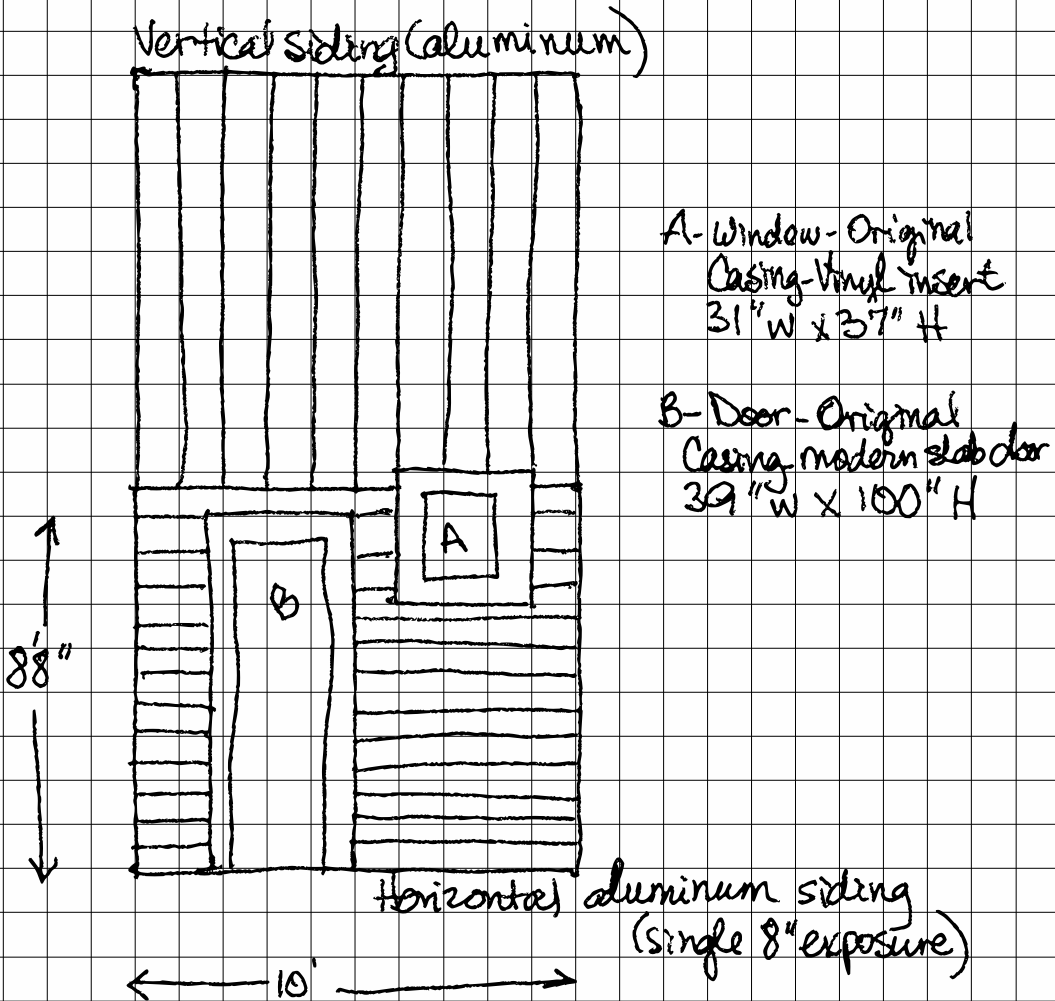 Vertical siding (aluminum)
A- Window - Original
Casing - Vinyl insert
31" W x 37" H
B- Door - Original
Casing modern slab door
39" W X 100" H
A
B
8'8"
Horizontal aluminum siding
(single 8" exposure)
10'